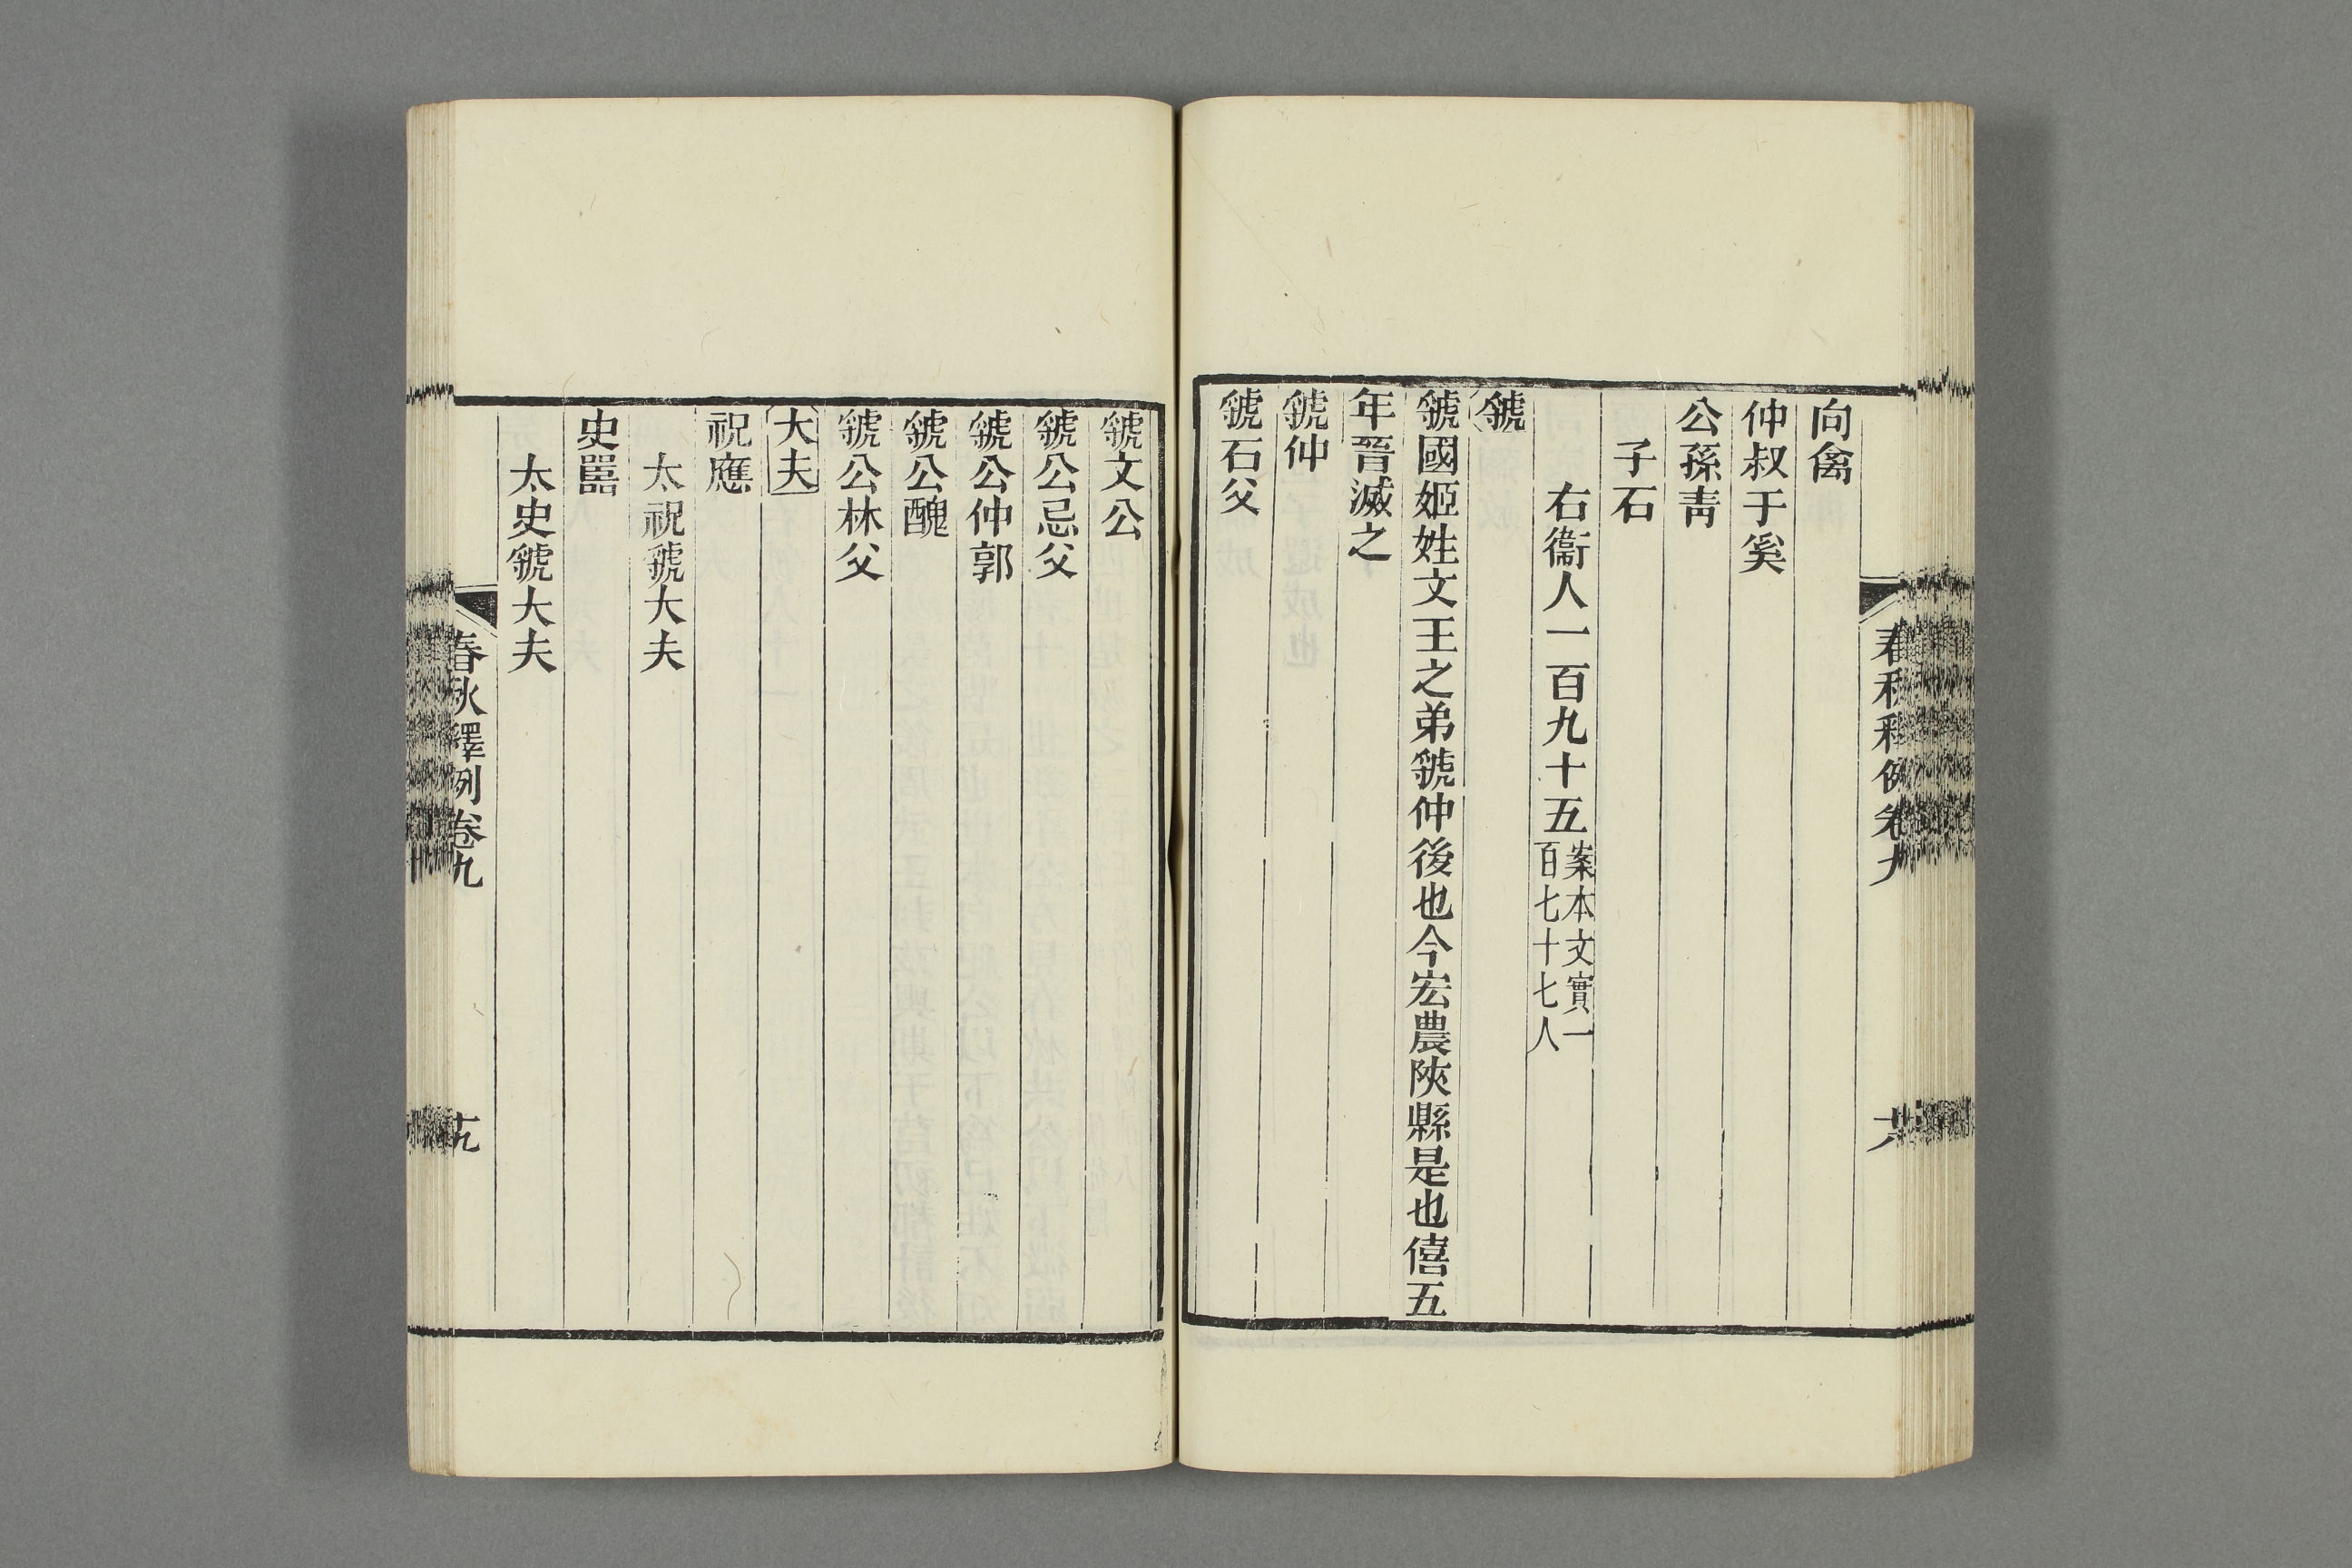 春秋釋例卷九
大
向禽
仲叔于奚
公孫青
子石
右衞人一百九十五案本文實一
百七十七人
虢
虢國姬姓文王之弟虢仲後也今宏農陜縣是也僖五
年晉滅之
虢仲
虢石父
虢文公
虢公忌父
虢公仲郭
虢公醜
虢公林父
大夫
祝應
太祝虢大夫
史嚚
太史虢大夫
春秋釋例卷九
十九